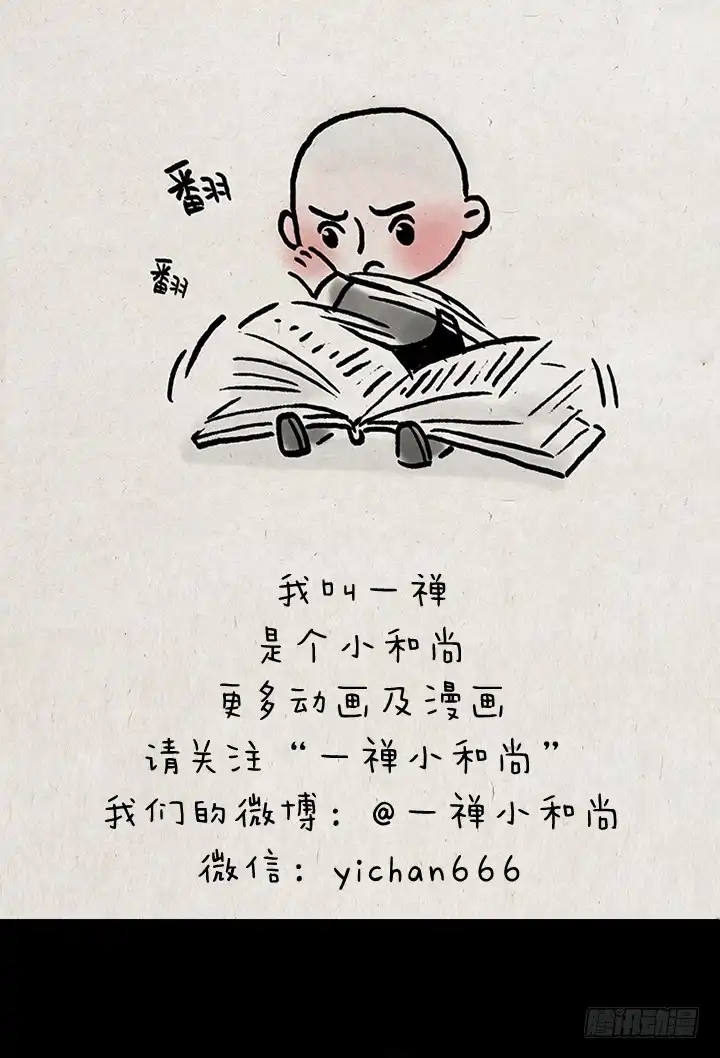 翻
翻
我叫一禅
是个小和尚
更多动画及漫画
请关注“一禅小和尚”
我们的微博：@一禅小和尚
微信：yichan666
腾讯动漫